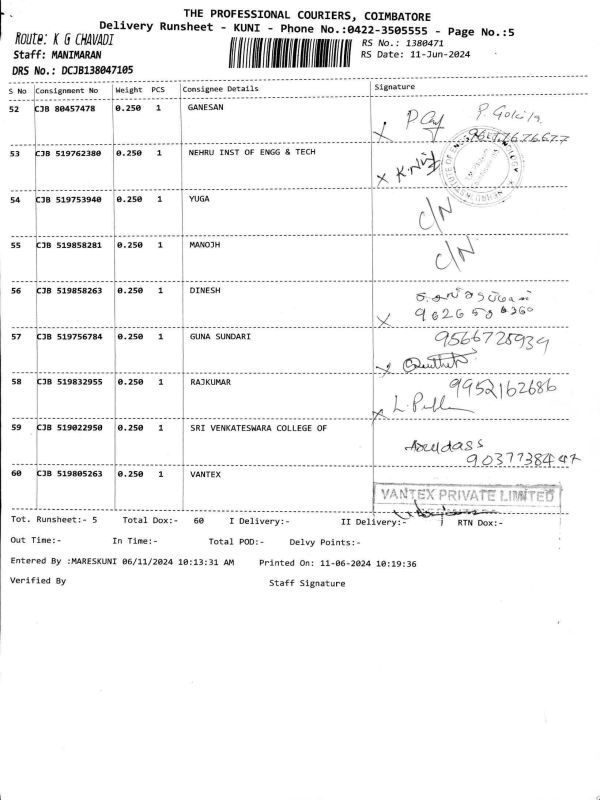 THE PROFESSIONAL COURIERS, COIMBATORE
Delivery Runsheet - KUNI - Phone No.:0422-3505555 - Page No.:5
Route: K G CHAVADI
RS No.: 1380471
Staff: MANIMARAN
RS Date: 11-Jun-2024
DRS No.: DCJB138047105
S No Consignment No Weight PCS Consignee Details Signature
52 CJB 80457478 0.250 1 GANESAN
53 CJB 519762380 0.250 1 NEHRU INST OF ENGG & TECH
54 CJB 519753940 0.250 1 YUGA C/N
55 CJB 519858281 0.250 1 MANOJH C/N
56 CJB 519858263 0.250 1 DINESH
57 CJB 519756784 0.250 1 GUNA SUNDARI 9566725939
58 CJB 519832955 0.250 1 RAJKUMAR 9952162686
59 CJB 519022950 0.250 1 SRI VENKATESWARA COLLEGE OF
60 CJB 519805263 0.250 1 VANTEX
VANTEX PRIVATE LIMITED
Tot. Runsheet:- 5 Total Dox:- 60 I Delivery:- II Delivery:- RTN Dox:-
Out Time:- In Time:- Total POD:- Delvy Points:-
Entered By :MARESKUNI 06/11/2024 10:13:31 AM Printed On: 11-06-2024 10:19:36
Verified By Staff Signature